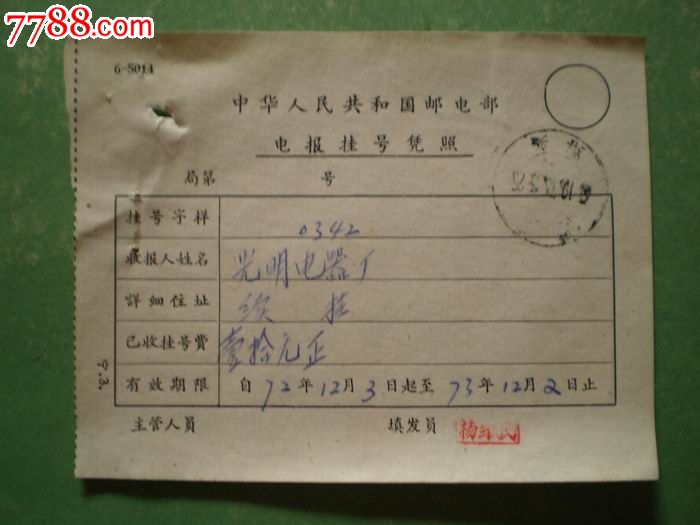 7788.com
6-5014
中华人民共和国邮电部
电报挂号凭照
局第 号
挂号字样 0342
收报人姓名 光明电器厂
詳細住址 续 挂
已收挂号費 壹拾元正
有效期限 自72年12月3日起至73年12月2日止
主管人員 填发員